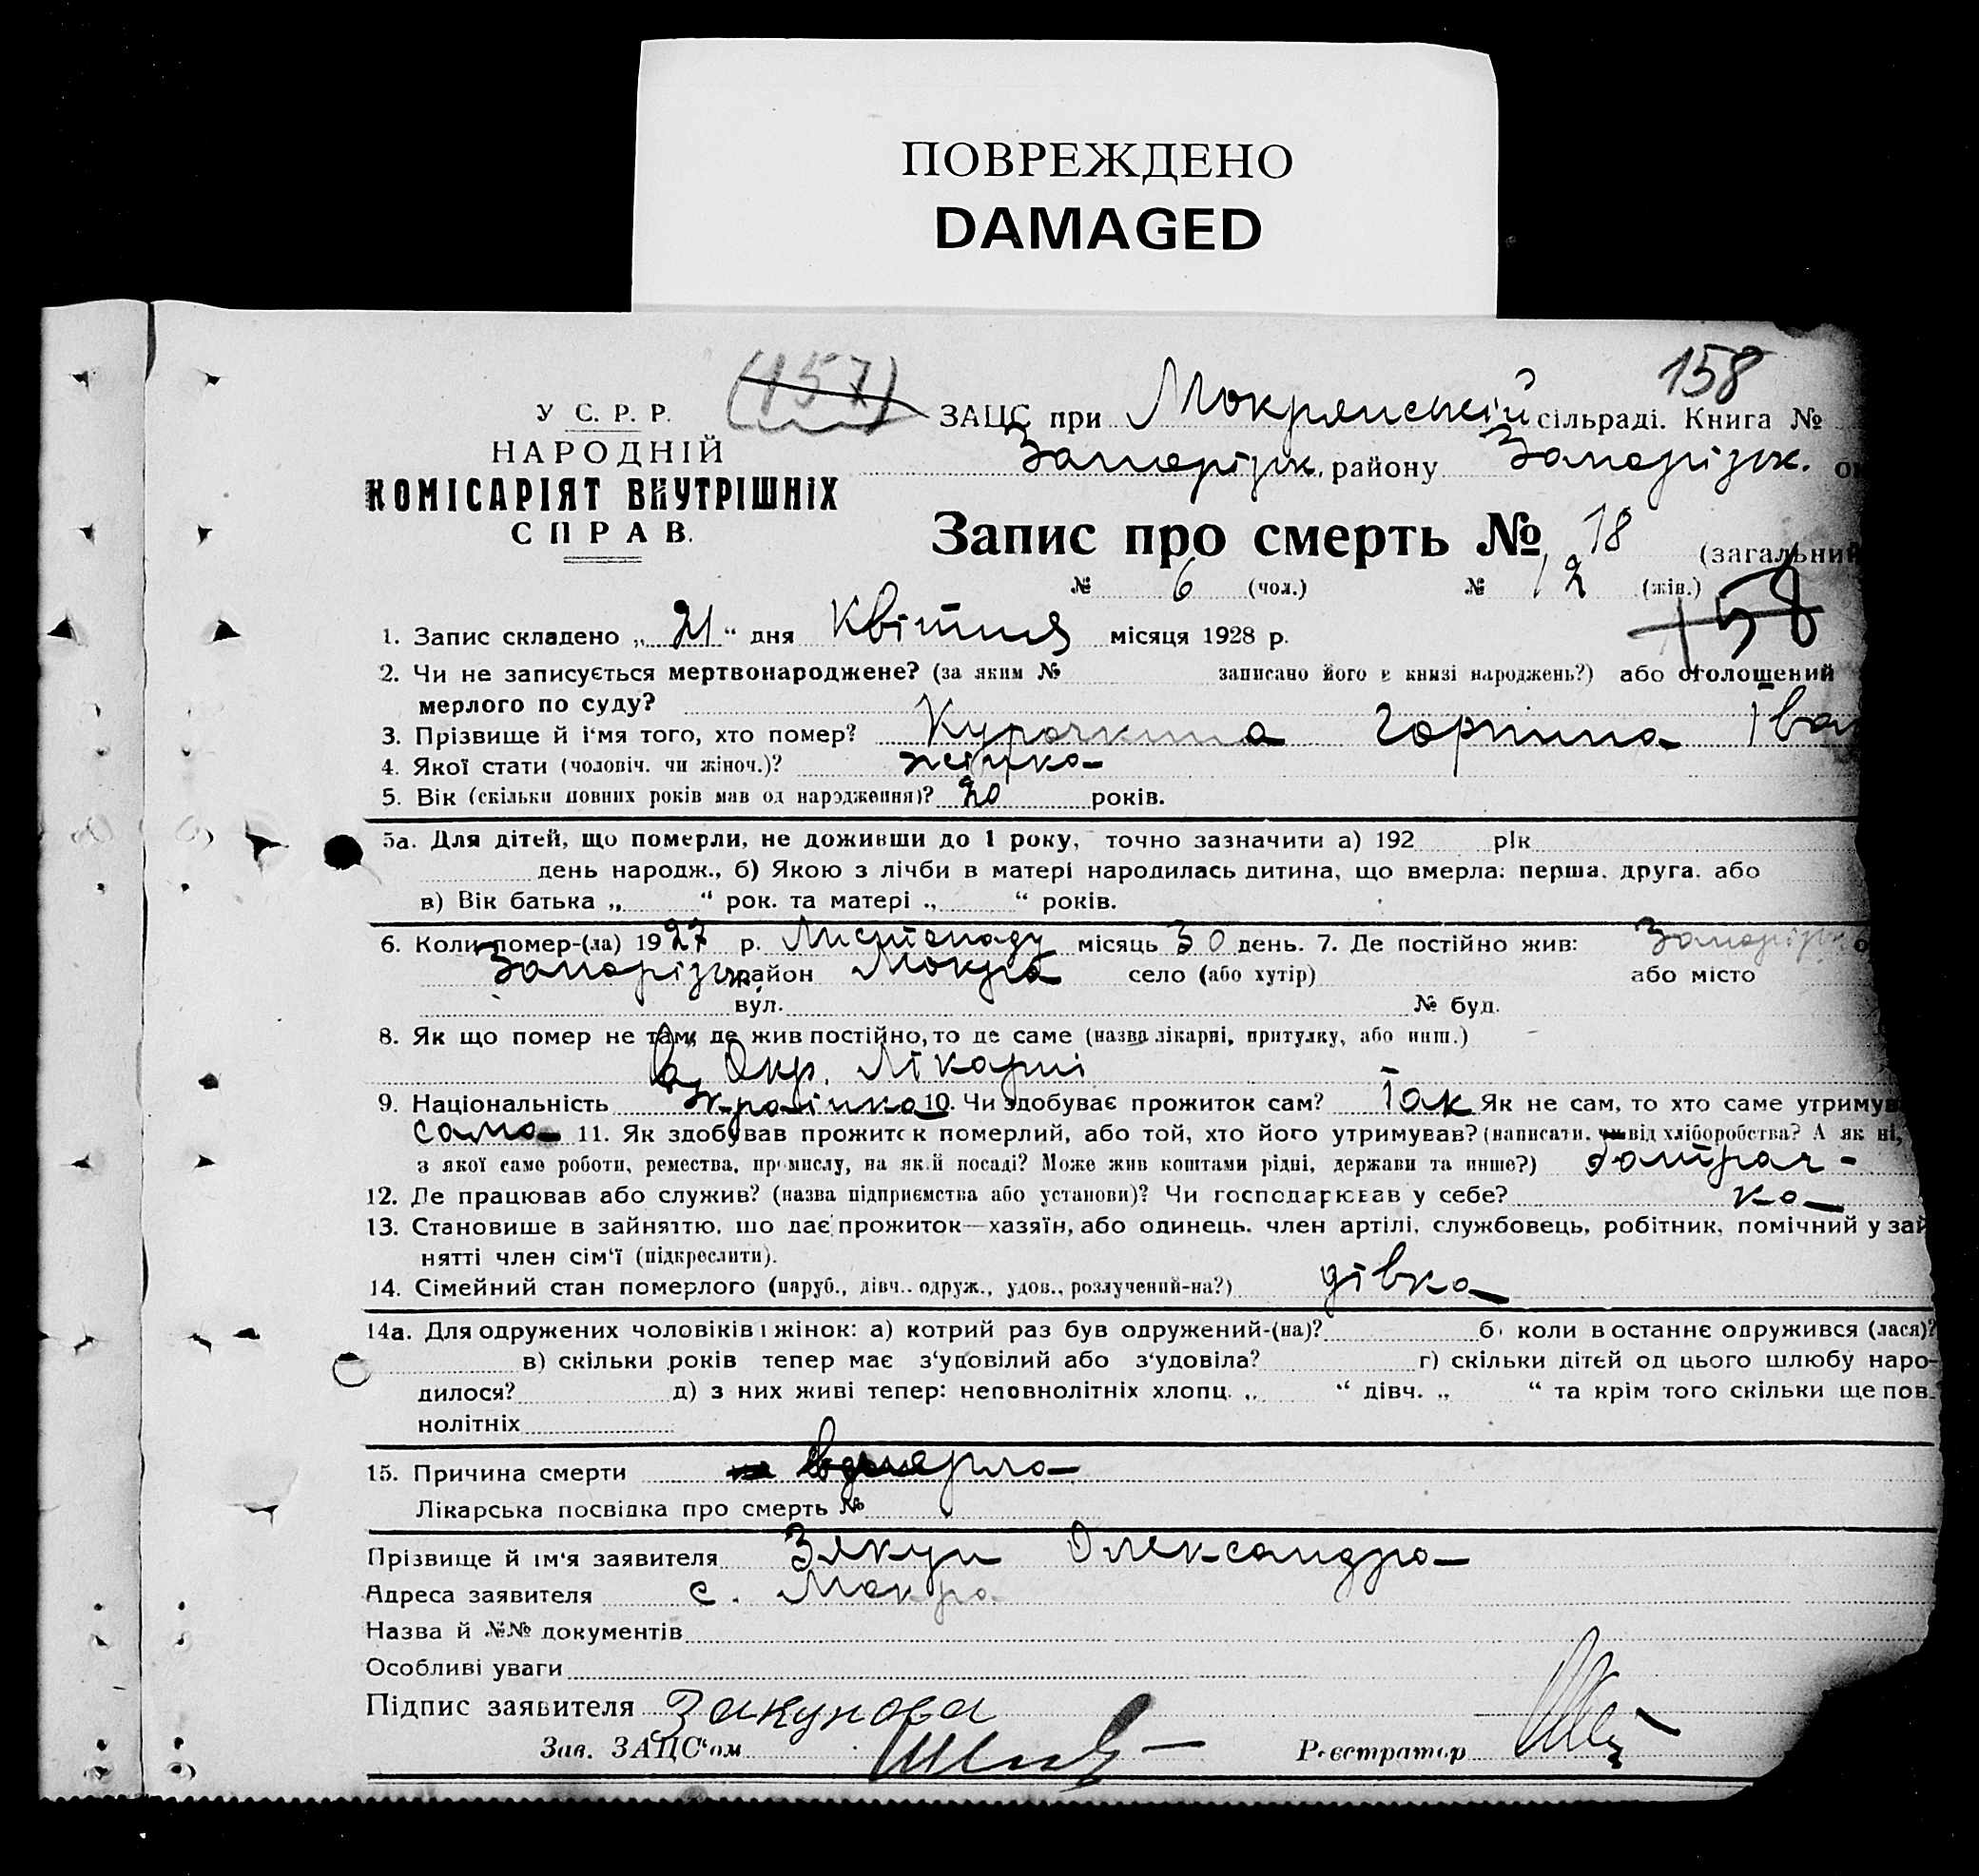 ПОВРЕЖДЕНО
DAMAGED
158
(157)
У С. Р. Р.
НАРОДНІЙ
КОМІСАРІЯТ ВНУТРІШНІХ
СПРАВ.
ЗАЦС при Мокрянській сільраді. Книга №
Запорізьк. району Запорізьк. ок
Запис про смерть № 18 (загальний
№ 6 (чол.) № 12 (жін.)
158
1. Запис складено „21“ дня Квітня місяця 1928 р.
2. Чи не записується мертвонароджене? (за яким № записано його в книзі народжень?) або оголошений
мерлого по суду?
3. Прізвище й і‘мя того, хто помер? Курочкина Горпина Іван
4. Якої стати (чоловіч. чи жіноч.)? жінка
5. Вік (скільки повних років мав од народження)? 20 років.
5а. Для дітей, що померли, не доживши до 1 року, точно зазначити а) 192 рік
день народж., б) Якою з лічби в матері народилась дитина, що вмерла: перша, друга, або
в) Вік батька „ “ рок. та матері „ “ років.
6. Коли помер-(ла) 1927 р. Листопаду місяць 30 день. 7. Де постійно жив: Запорізька о
Запорізьк. район Мокра село (або хутір) або місто
вул. № буд.
8. Як що помер не там, де жив постійно, то де саме (назва лікарні, притулку, або инш.)
в Окр. Лікарні
9. Національність Українка 10. Чи здобуває прожиток сам? Так Як не сам, то хто саме утримув
сама 11. Як здобував прожиток померлий, або той, хто його утримував? (написати, чи від хліборобства? А як ні,
з якої саме роботи, ремества, промислу, на якій посаді? Може жив коштами рідні, держави та инше?) батрач-
12. Де працював або служив? (назва підприємства або установи)? Чи господарював у себе? ка
13. Становище в зайнятю, що дає прожиток—хазяїн, або одинець, член артілі, службовець, робітник, помічний у зай
нятті член сім‘ї (підкреслити).
14. Сімейний стан померлого (паруб., дівч., одруж., удов., розлучений-на?) дівка
14а. Для одружених чоловіків і жінок: а) котрий раз був одружений-(на)? б) коли в останнє одружився (лася)?
в) скільки років тепер має з‘удовілий або з‘удовіла? г) скільки дітей од цього шлюбу наро-
дилося? д) з них живі тепер: неповнолітніх хлопц. „ “ дівч. „ “ та крім того скільки ще пов-
нолітніх
15. Причина смерти
Лікарська посвідка про смерть №
Прізвище й ім‘я заявителя Зякун Олександра
Адреса заявителя с. Мокра
Назва й №№ документів
Особливі уваги
Підпис заявителя Закунова
Зав. ЗАЦС‘ом Реєстратор